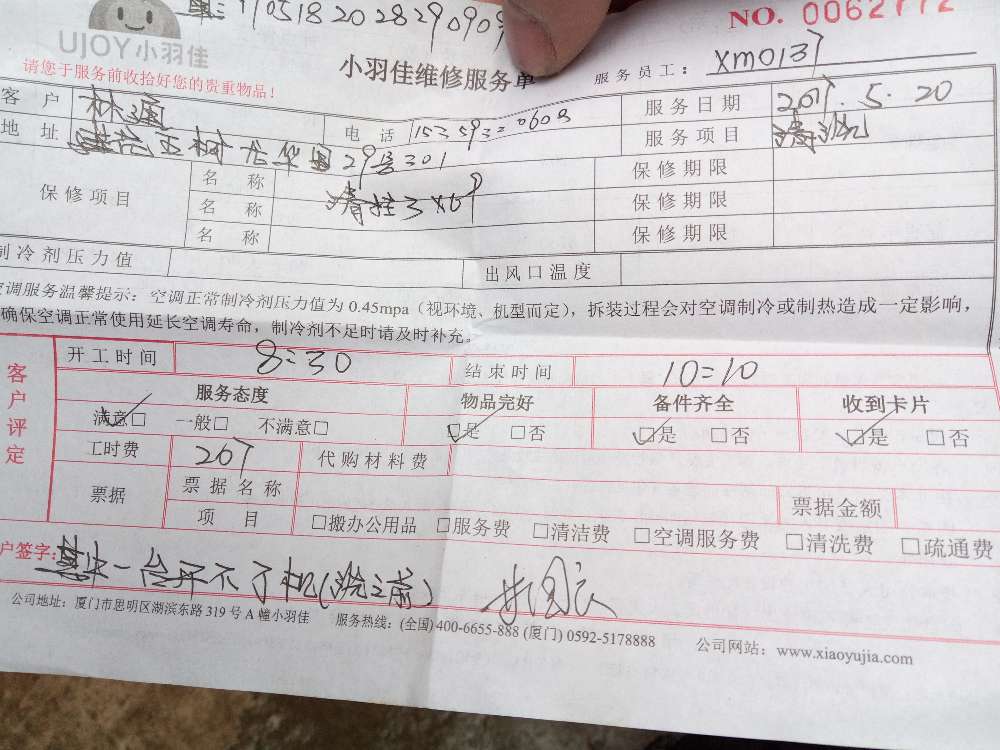 单:170518202829090
NO. 0062772
UJOY小羽佳
小羽佳维修服务单
服务员工: XM0137
请您于服务前收拾好您的贵重物品!
客 户
电 话
服务日期 2017.5.20
地 址 29号301
服务项目 清洗
保修项目
名 称
保修期限
名 称 清挂3×69
保修期限
名 称
保修期限
制冷剂压力值
出风口温度
空调服务温馨提示: 空调正常制冷剂压力值为 0.45mpa (视环境、机型而定), 拆装过程会对空调制冷或制热造成一定影响,
确保空调正常使用延长空调寿命, 制冷剂不足时请及时补充。
客户评定
开工时间 8:30 结束时间 10:10
服务态度 物品完好 备件齐全 收到卡片
满意□ 一般□ 不满意□ □是 □否 □是 □否 □是 □否
工时费 207 代购材料费
票据 票据名称 票据金额
项 目 □搬办公用品 □服务费 □清洁费 □空调服务费 □清洗费 □疏通费
户签字: 其中一台开不了机(洗之前)
公司地址: 厦门市思明区湖滨东路 319 号 A 幢小羽佳 服务热线: (全国) 400-6655-888 (厦门) 0592-5178888 公司网站: www.xiaoyujia.com